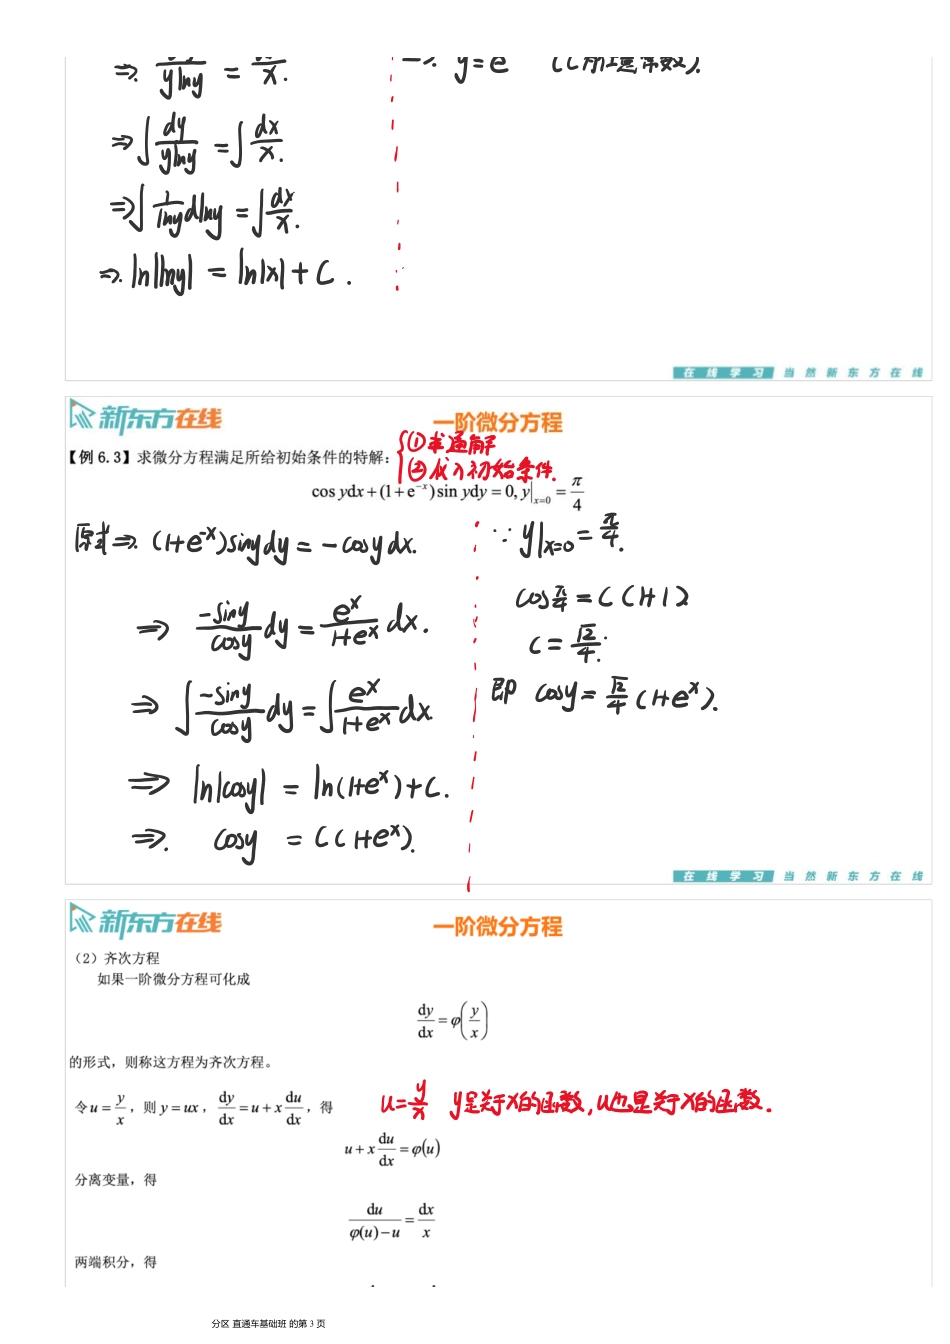 ⇒. dy/(y lny) = dx/x.
⇒ ∫ dy/(y lny) = ∫ dx/x.
⇒ ∫ 1/lny dlny = ∫ dx/x.
⇒. ln|lny| = ln|x| + C.
在线学习 当然新东方在线
新东方在线
一阶微分方程
【例 6.3】求微分方程满足所给初始条件的特解：
①求通解
②代入初始条件.
cos ydx + (1 + e^{-x}) sin ydy = 0, y|_{x=0} = π/4
原式⇒. (1+e^{-x}) siny dy = -cosy dx.
⇒ -siny/cosy dy = e^x/(1+e^x) dx.
⇒ ∫ -siny/cosy dy = ∫ e^x/(1+e^x) dx
⇒ ln|cosy| = ln(1+e^x) + C.
⇒. cosy = C(1+e^x).
∵ y|_{x=0} = π/4.
cos π/4 = C(1+1)
C = √2/4.
即 cosy = √2/4 (1+e^x).
在线学习 当然新东方在线
新东方在线
一阶微分方程
（2）齐次方程
如果一阶微分方程可化成
dy/dx = φ(y/x)
的形式，则称这方程为齐次方程。
令 u = y/x，则 y = ux，dy/dx = u + x du/dx，得
u = y/x y是关于x的函数, u也是关于x的函数.
u + x du/dx = φ(u)
分离变量，得
du/(φ(u) - u) = dx/x
两端积分，得
分区 直通车基础班 的第 3 页